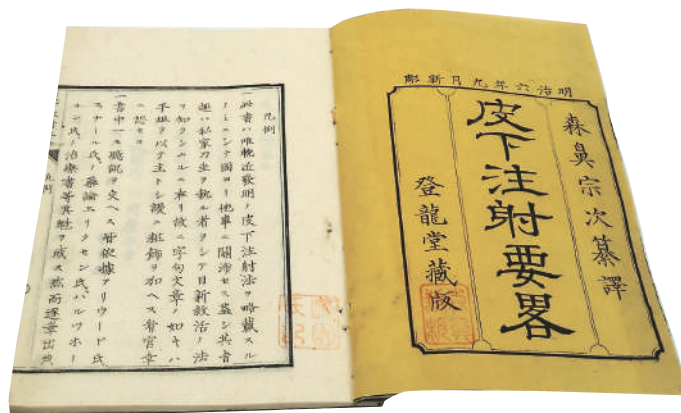 明治六年九月新彫
森鼻宗次纂譯
皮下注射要畧
登龍堂藏版
凡例
一此書ハ唯輓近發明ノ皮下注射法ヲ略載スル
ノミニシテ固ヨリ他事ニ關渉セス蓋シ其旨
趣ハ私家刀圭ヲ執ル者ヲシテ日新救活ノ法
ヲ知ラシムルニ在リ故ニ字句文章ノ如キハ
平坦ヲ以テ主トシ謾ニ粧飾ヲ加ヘス看官幸
ニ認セヨ
一書中一モ臆説ヲ交ヘス皆依據アリウード氏
スナール氏ノ藥論エリクセン氏バルツホー
ルン氏ノ治療書等其他ヲ
凡例